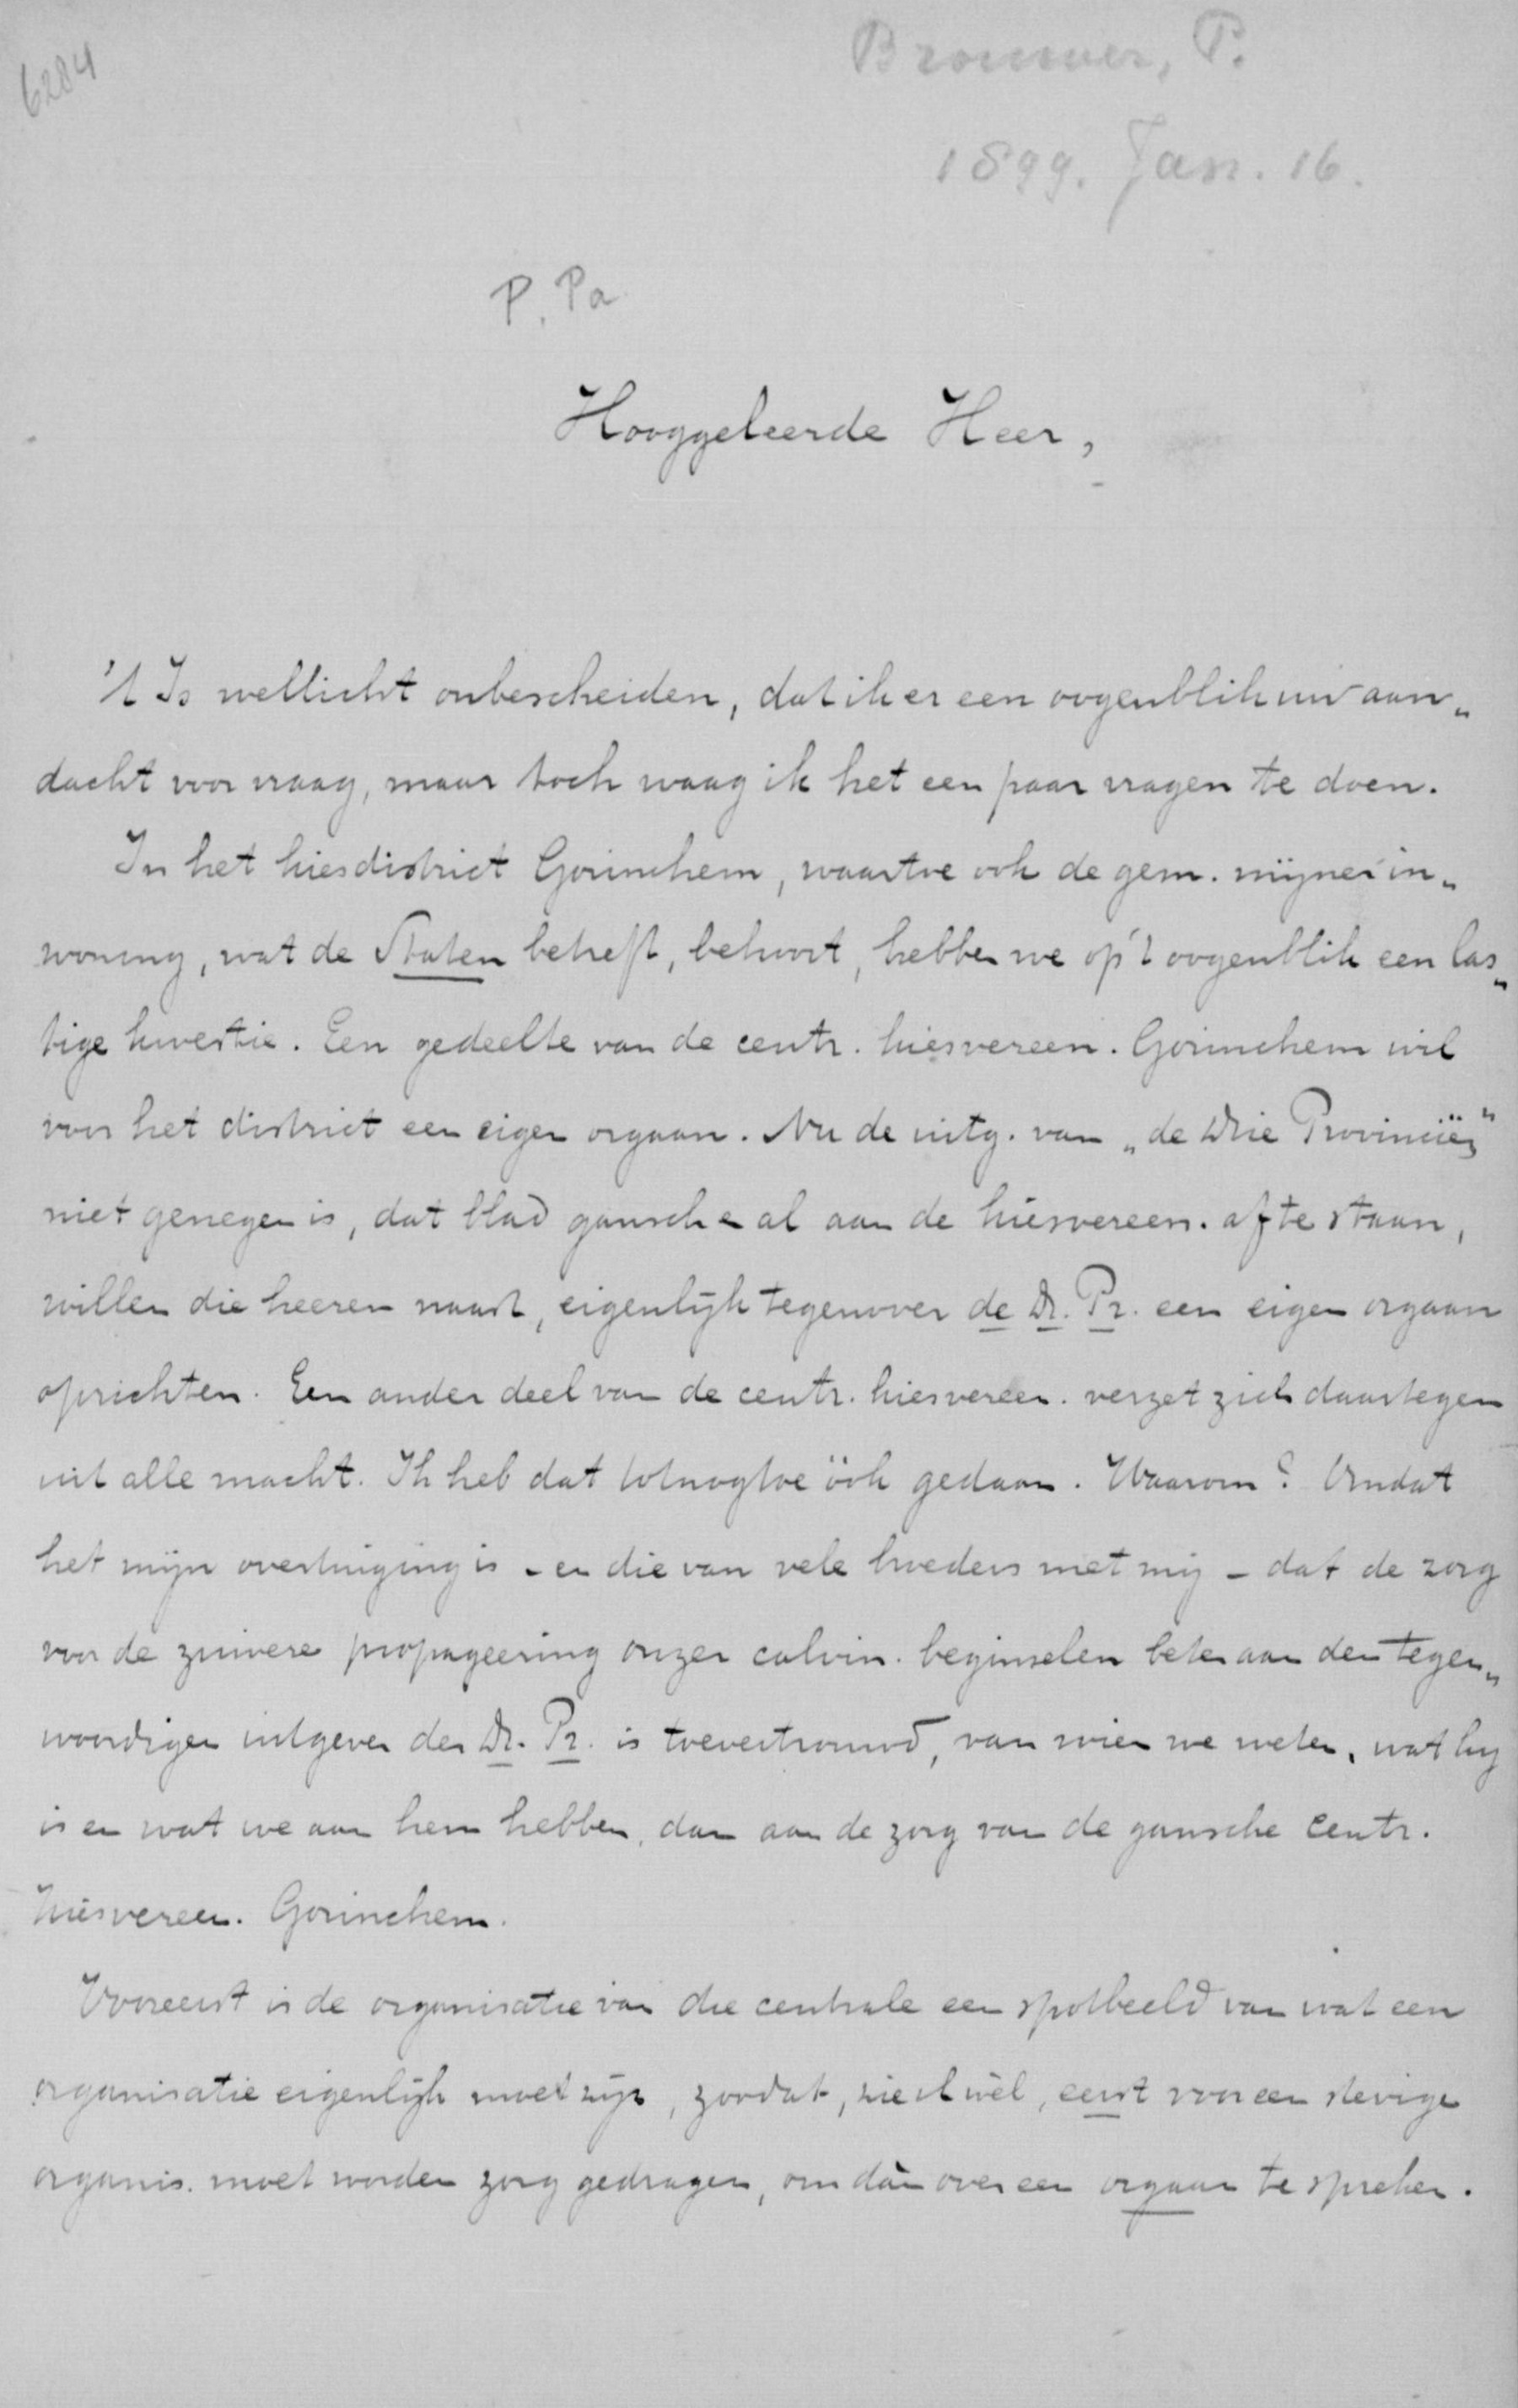 6284
Brouwer, P.
1899. Jan. 16.
P. Pa
Hooggeleerde Heer,
't Is wellicht onbescheiden, dat ik er een oogenblik uw aan„
dacht voor vraag, maar toch waag ik het een paar vragen te doen.
In het kiesdistrict Gorinchem, waartoe ook de gem. mijner in„
woning, wat de Staten betreft, behoort, hebben we op 't oogenblik een las„
tige kwestie. Een gedeelte van de centr. kiesvereen. Gorinchem wil
voor het district een eigen orgaan. Nu de uitg. van „de Drie Provinciën"
niet genegen is, dat blad gansch en al aan de kiesvereen. af te staan,
willen die heeren naast, eigenlijk tegenover de Dr. Pr. een eigen orgaan
oprichten. Een ander deel van de centr. kiesvereen. verzet zich daartegen
uit alle macht. Ik heb dat totnogtoe óók gedaan. Waarom? Omdat
het mijn overtuiging is – en die van vele broeders met mij – dat de zorg
voor de zuivere propageering onzer calvin. beginselen beter aan den tegen„
woordigen uitgever der Dr. Pr. is toevertrouwd, van wien we weten, wat hij
is en wat we aan hem hebben, dan aan de zorg van de gansche centr.
kiesvereen. Gorinchem.
Vooreerst is de organisatie van die centrale een spotbeeld van wat een
organisatie eigenlijk moet zijn, zoodat, niet wèl, eerst voor een stevige
organis. moet worden zorg gedragen, om dàn over een orgaan te spreken.